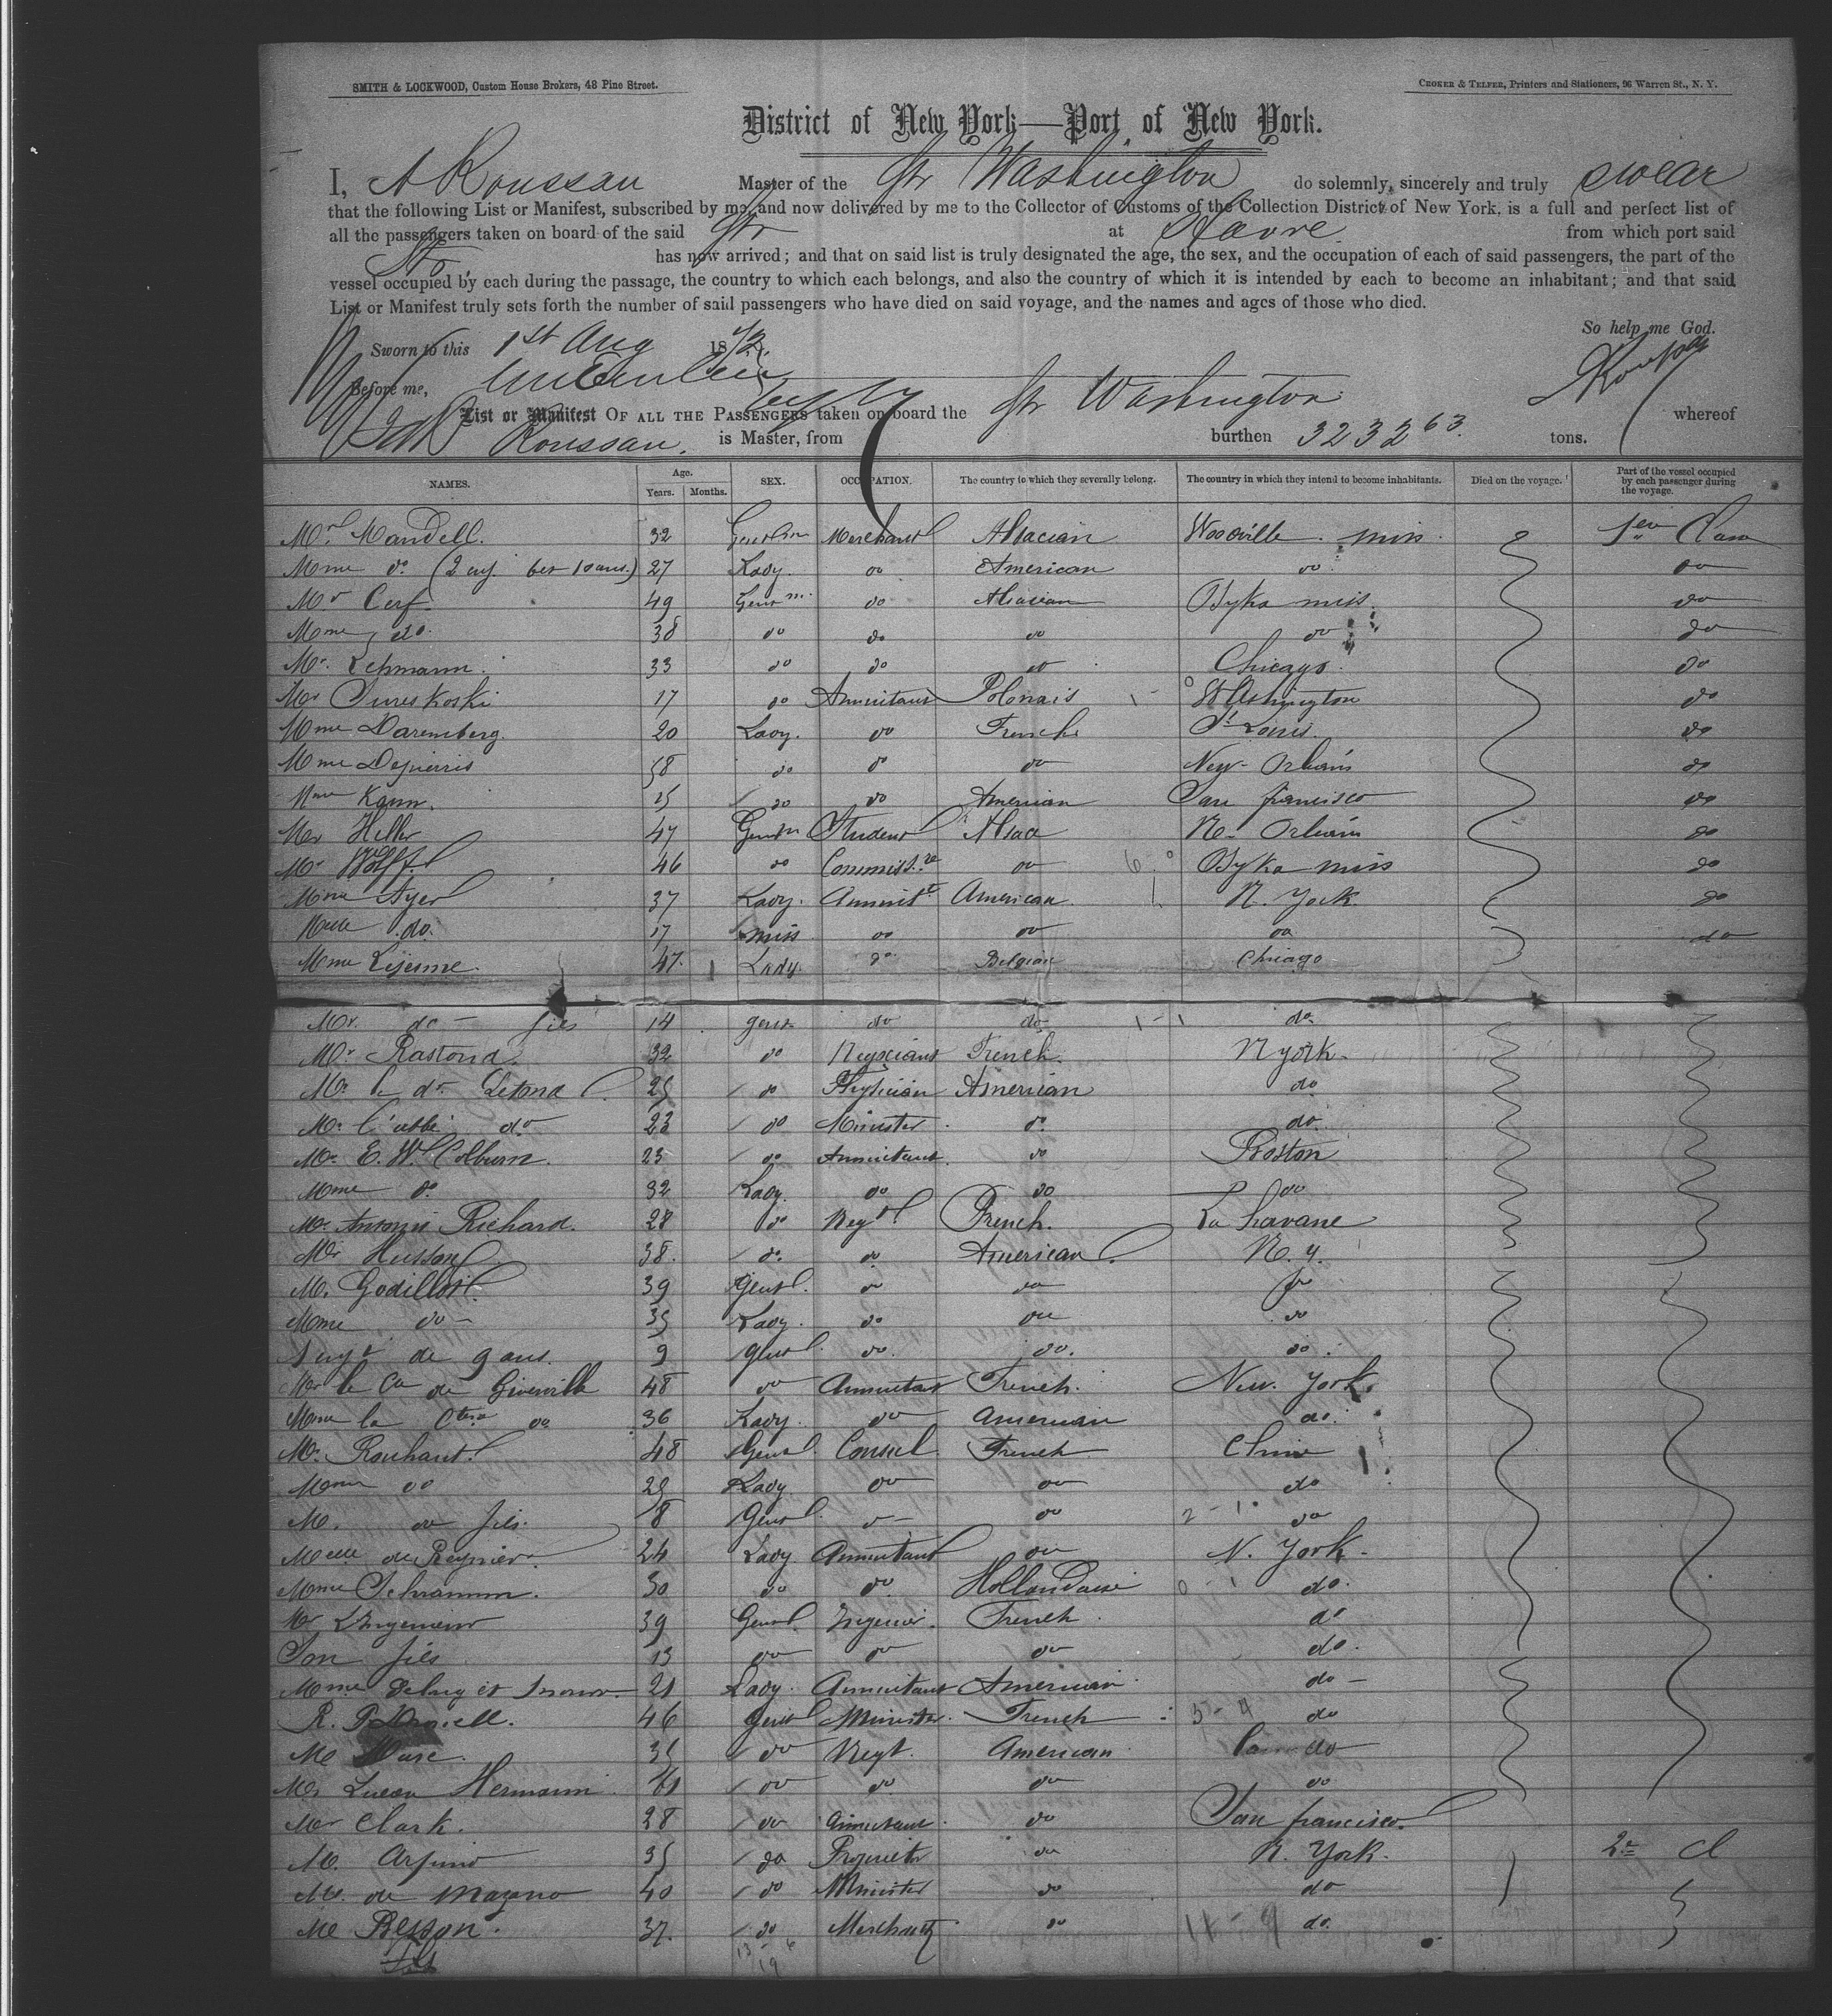 SMITH & LOCKWOOD, Custom House Brokers, 48 Pine Street.
CROKER & TELFER, Printers and Stationers, 96 Warren St., N. Y.
District of New York—Port of New York.
I, A Roussan Master of the Str Washington do solemnly, sincerely and truly swear
that the following List or Manifest, subscribed by me, and now delivered by me to the Collector of Customs of the Collection District of New York, is a full and perfect list of
all the passengers taken on board of the said Str at Havre from which port said
Str has now arrived; and that on said list is truly designated the age, the sex, and the occupation of each of said passengers, the part of the
vessel occupied by each during the passage, the country to which each belongs, and also the country of which it is intended by each to become an inhabitant; and that said
List or Manifest truly sets forth the number of said passengers who have died on said voyage, and the names and ages of those who died.
So help me God.
Sworn to this 1st Aug 1872
Before me,
List or Manifest OF ALL THE PASSENGERS taken on board the Str Washington whereof
Roussan. is Master, from burthen 3232 63 tons.
NAMES. Age. Years. Months. SEX. OCCUPATION. The country to which they severally belong. The country in which they intend to become inhabitants. Died on the voyage. Part of the vessel occupied by each passenger during the voyage.
Mr Mandell. 32 Gentlm Merchant Alsacian Woodville. miss. 1er Class
Mme do (2 enf. 10 ans.) 27 Lady. do American do do
Mr Cerf. 49 Gentm. do Alsacian Osyka miss. do
Mme do. 38 do do do do do
Mr. Lehmann. 33 do do do Chicago. do
Mr 17 do Annuitant Polonais Washington do
Mme Daremberg. 20 Lady. do French St Louis. do
Mme 58 do do do New-Orléans do
Mme Kann. 25 do do American San francisco do
Mr Heller 47 Gentm Student Alsace N- Orléans do
Mr Wolff 46 do Commiss.re do Osyka miss do
Mme Ayer 37 Lady. Annuitt American N. York do
Melle do. 17 miss do do do do
Mme Lejeune. 47. Lady. do Belgian Chicago
Mr. do - fils 14 gent do do do
Mr Rastond 32 do Negociant French. N york.
Mr le dr Letond 25 do Physician American do
Mr l'abbé do 23 do Minister do do
Mr E. W. Colburn. 25 do Annuitant do Boston
Mme do 32 Lady. do do do
Mr Antonio Richard. 28 do Negt French. La havane
Mr Husson 38. do. do American N. y.
M. Godillot. 39 Gent. do do do
Mme do - 35 Lady. do do do
1 enft de 9 ans. 9 Gent do. do. do.
Mr le Cte de Giverville 48 do Annuitant French. New. York.
Mme la Ctesse do 36 Lady. do American do.
Mr. Rouhaut 48 Gent. Consul French Chine
Mme do 29 Lady do do do
M. do fils. 8 Gent. do do do
Melle de Reynier. 24 Lady Annuitant do N. York.
Mme Schramm. 30 do do Hollandaise do.
Mr L'Ingenieur 39 Gent. Ingenier. French. do
Son fils 13 do do do do.
Mme 21 Lady. Annuitant American do -
R. P. 46 Gent Minister. French 5-4 do
Mr 35 do Negt. American do
Mr Hermann 61 do do. do do
Mr Clark. 28 do annuitant. do San francisco.
M. 35 do Proprietor do N. York. 2e cl
Mr. de 40 do Minister do do
Mr Besson. 37. do Merchant do 11-9 do.